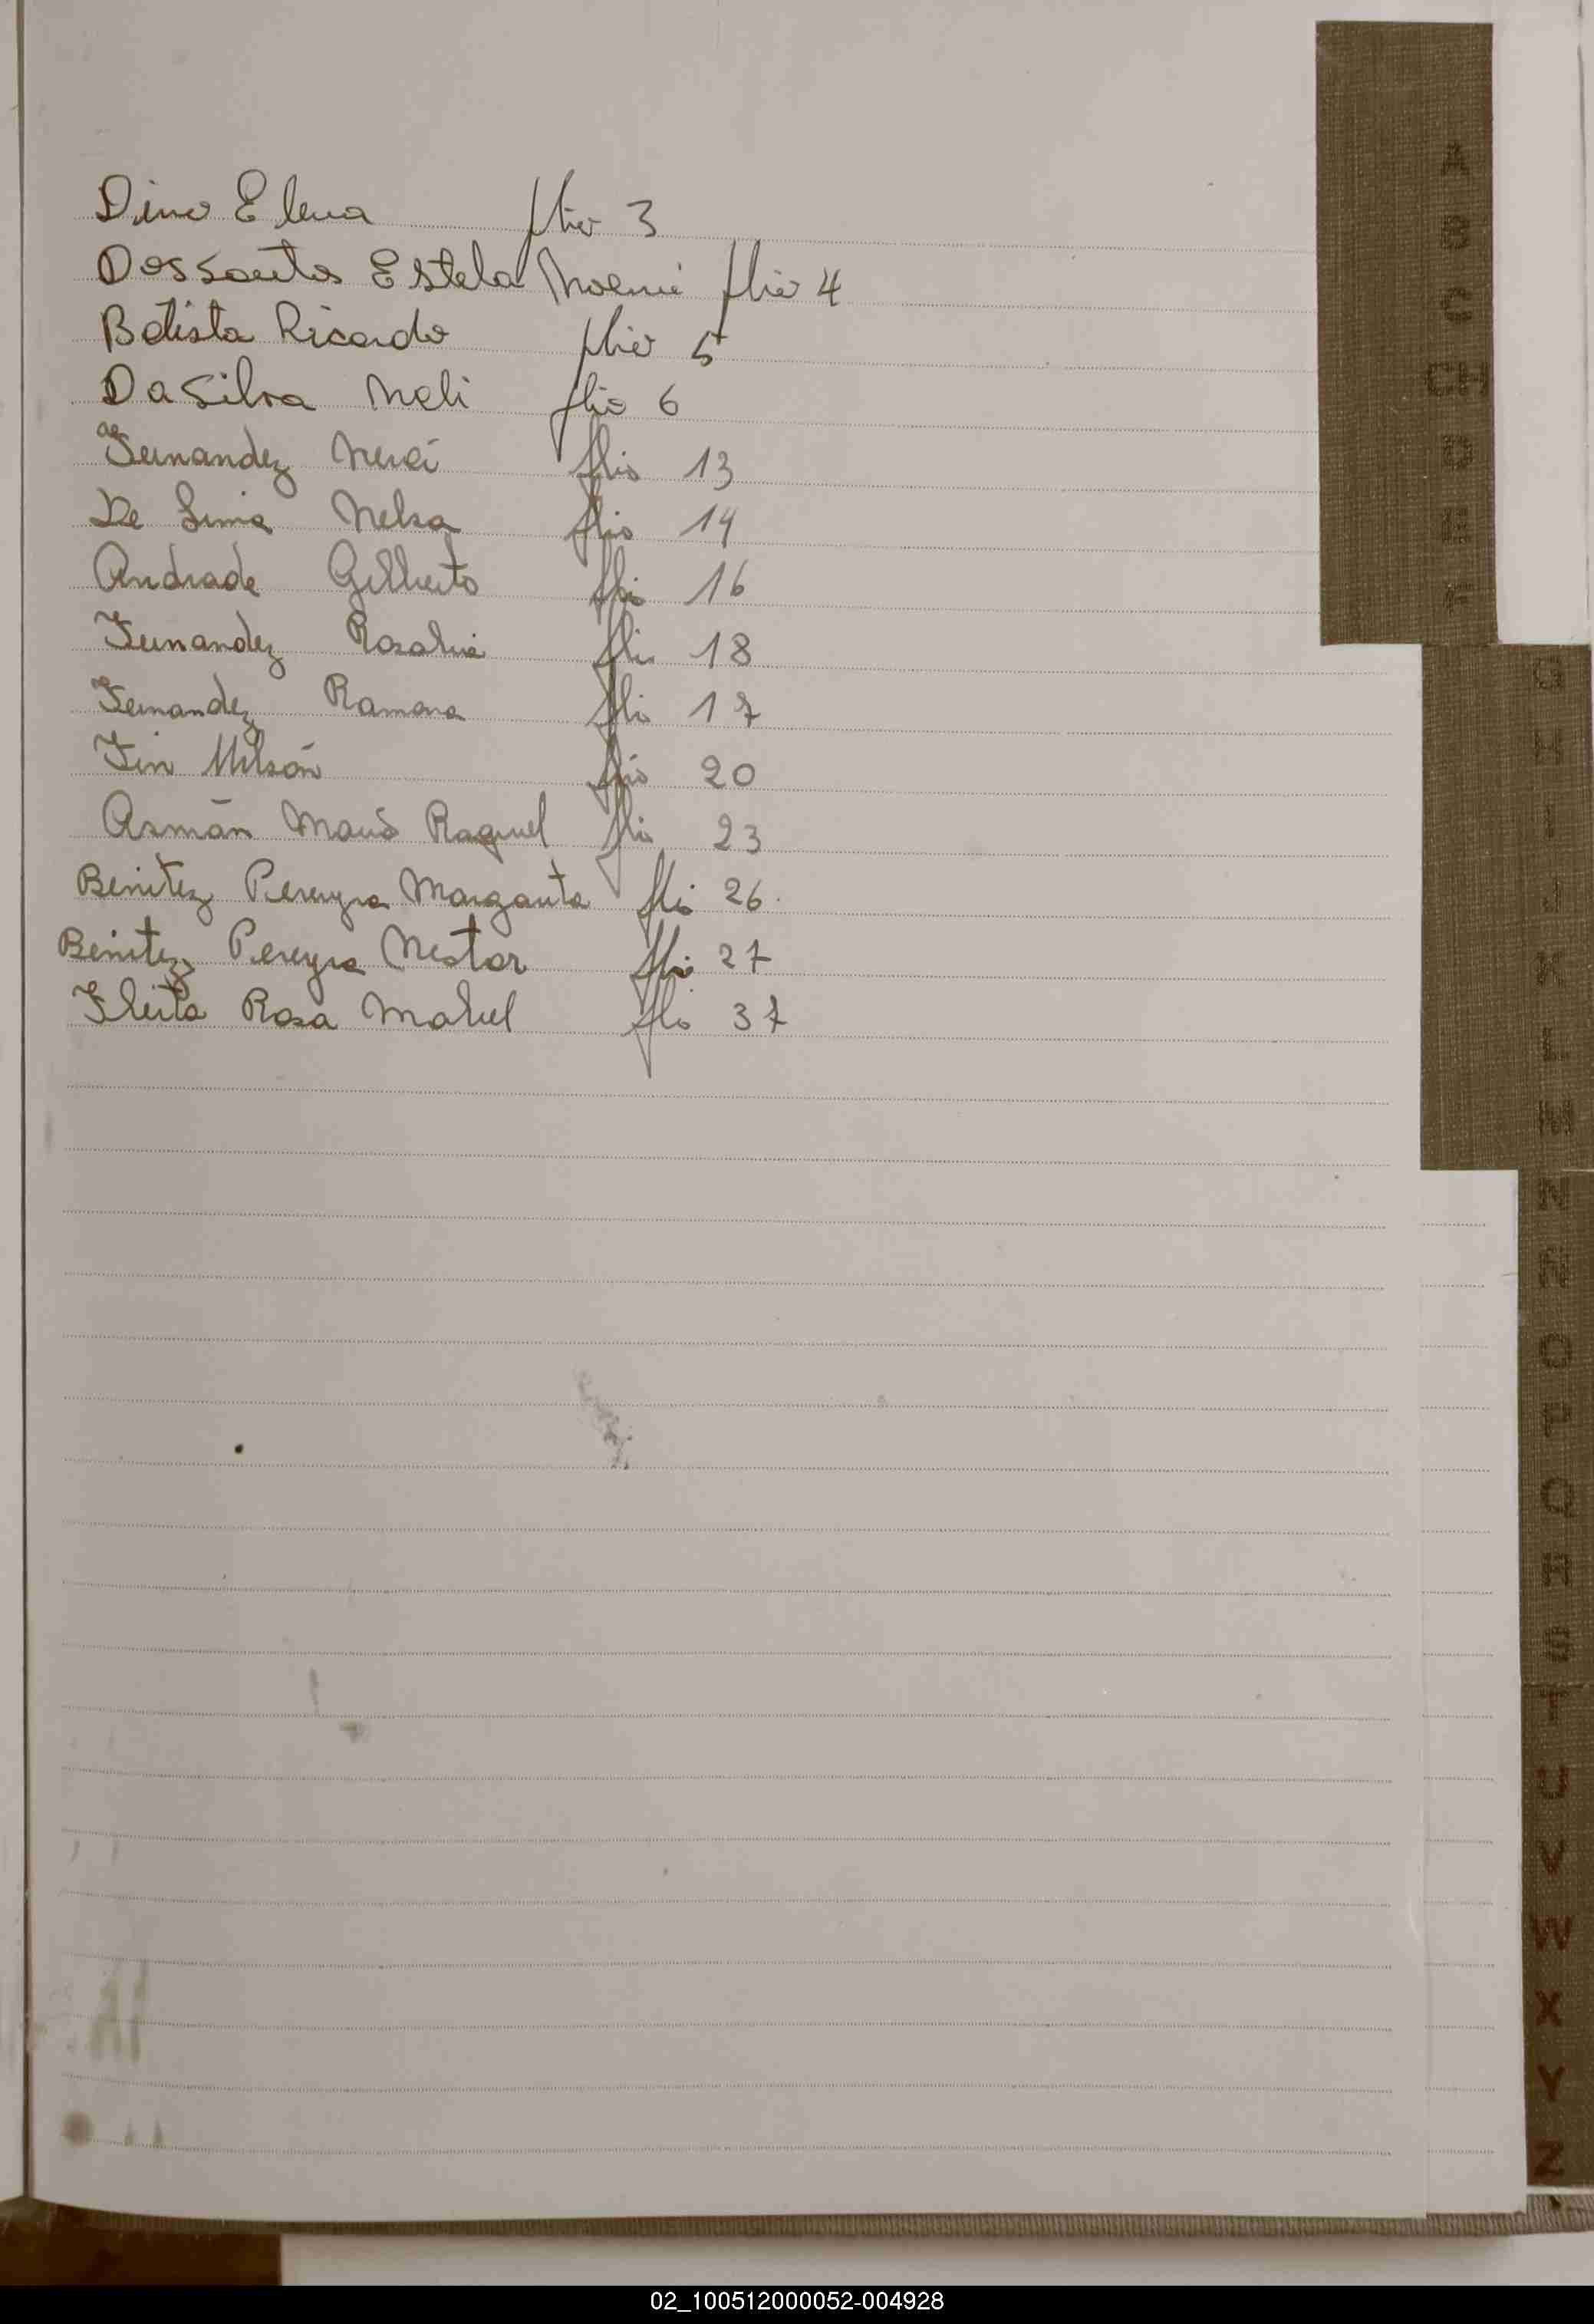 Dino Elena flio 3
Dossantos Estela Noemi flio 4
Batista Ricardo flio 5
Da Silva Neli flio 6
Fernandez Nerci flio 13
De Lima Nelsa flio 14
Andrade Gilberto flio 16
Fernandez Rosalia flio 18
Fernandez Ramona flio 17
Fin Nilsón flio 20
Asmán María Raquel flio 23
Benitez Pereyra Margarita flio 26
Benitez Pereyra Nestor flio 27
Fleita Rosa Mabel flio 37
A
B
C
CH
D
E
F
G
H
I
J
K
L
M
N
Ñ
O
P
Q
R
S
T
U
V
W
X
Y
Z
02_100512000052-004928